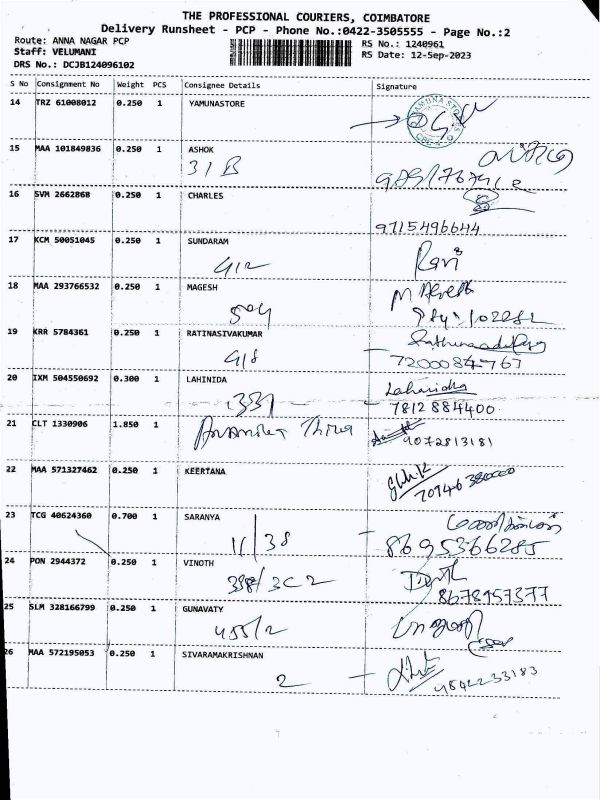 THE PROFESSIONAL COURIERS, COIMBATORE
Delivery Runsheet - PCP - Phone No.:0422-3505555 - Page No.:2
Route: ANNA NAGAR PCP
RS No.: 1240961
Staff: VELUMANI
RS Date: 12-Sep-2023
DRS No.: DCJB124096102
S No Consignment No Weight PCS Consignee Details Signature
14 TRZ 61008012 0.250 1 YAMUNASTORE
15 MAA 101849836 0.250 1 ASHOK
31 B
16 SVM 2662868 0.250 1 CHARLES
9715496644
17 KCM 50051045 0.250 1 SUNDARAM
412 Ravi
18 MAA 293766532 0.250 1 MAGESH
504
19 KRR 5784361 0.250 1 RATINASIVAKUMAR
418
7200084767
20 IXM 504550692 0.300 1 LAHINIDA
331 Laharidha
7812884400
21 CLT 1330906 1.850 1
9072813181
22 MAA 571327462 0.250 1 KEERTANA
70946380000
23 TCG 40624360 0.700 1 SARANYA
11/38 8695366285
24 PON 2944372 0.250 1 VINOTH
338/3C2
8678957377
25 SLM 328166799 0.250 1 GUNAVATY
455/2
26 MAA 572195053 0.250 1 SIVARAMAKRISHNAN
2 9842233183